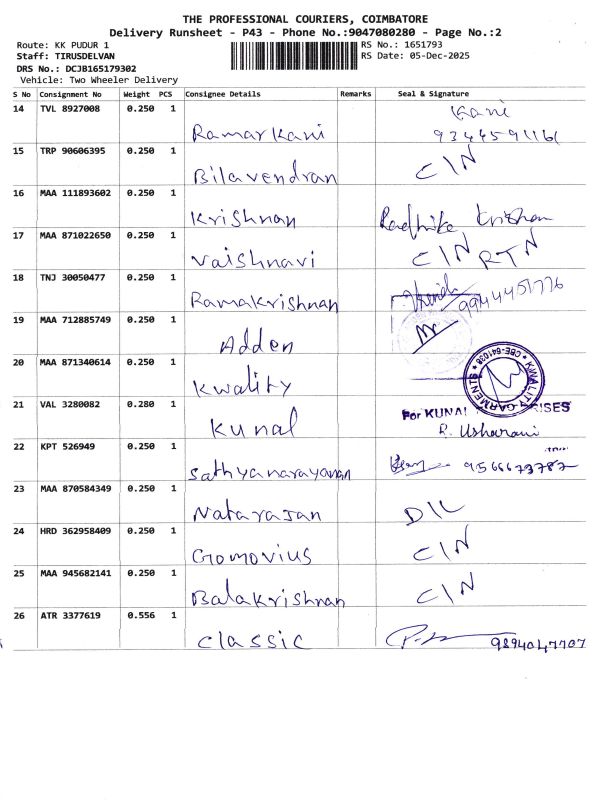 THE PROFESSIONAL COURIERS, COIMBATORE
Delivery Runsheet - P43 - Phone No.:9047080280 - Page No.:2
Route: KK PUDUR 1
RS No.: 1651793
Staff: TIRUSDELVAN
RS Date: 05-Dec-2025
DRS No.: DCJB165179302
Vehicle: Two Wheeler Delivery
S No Consignment No Weight PCS Consignee Details Remarks Seal & Signature
14 TVL 8927008 0.250 1 Kani
Ramarkani 9344591161
15 TRP 90606395 0.250 1
Bilavendran CIN
16 MAA 111893602 0.250 1
Krishnan Radhika Krishnan
17 MAA 871022650 0.250 1
Vaishnavi CIN RTN
18 TNJ 30050477 0.250 1
Ramakrishnan 9944451776
19 MAA 712885749 0.250 1
Adden
20 MAA 871340614 0.250 1
Kwality KWALITY GARMENTS * CBE-641038 *
21 VAL 3280082 0.280 1 For KUNAL
Kunal R. Usharani
22 KPT 526949 0.250 1
Sathyanarayanan 9566673787
23 MAA 870584349 0.250 1
Natarajan DIL
24 HRD 362958409 0.250 1
Gomovius CIN
25 MAA 945682141 0.250 1
Balakrishnan CIN
26 ATR 3377619 0.556 1
Classic 9894047707